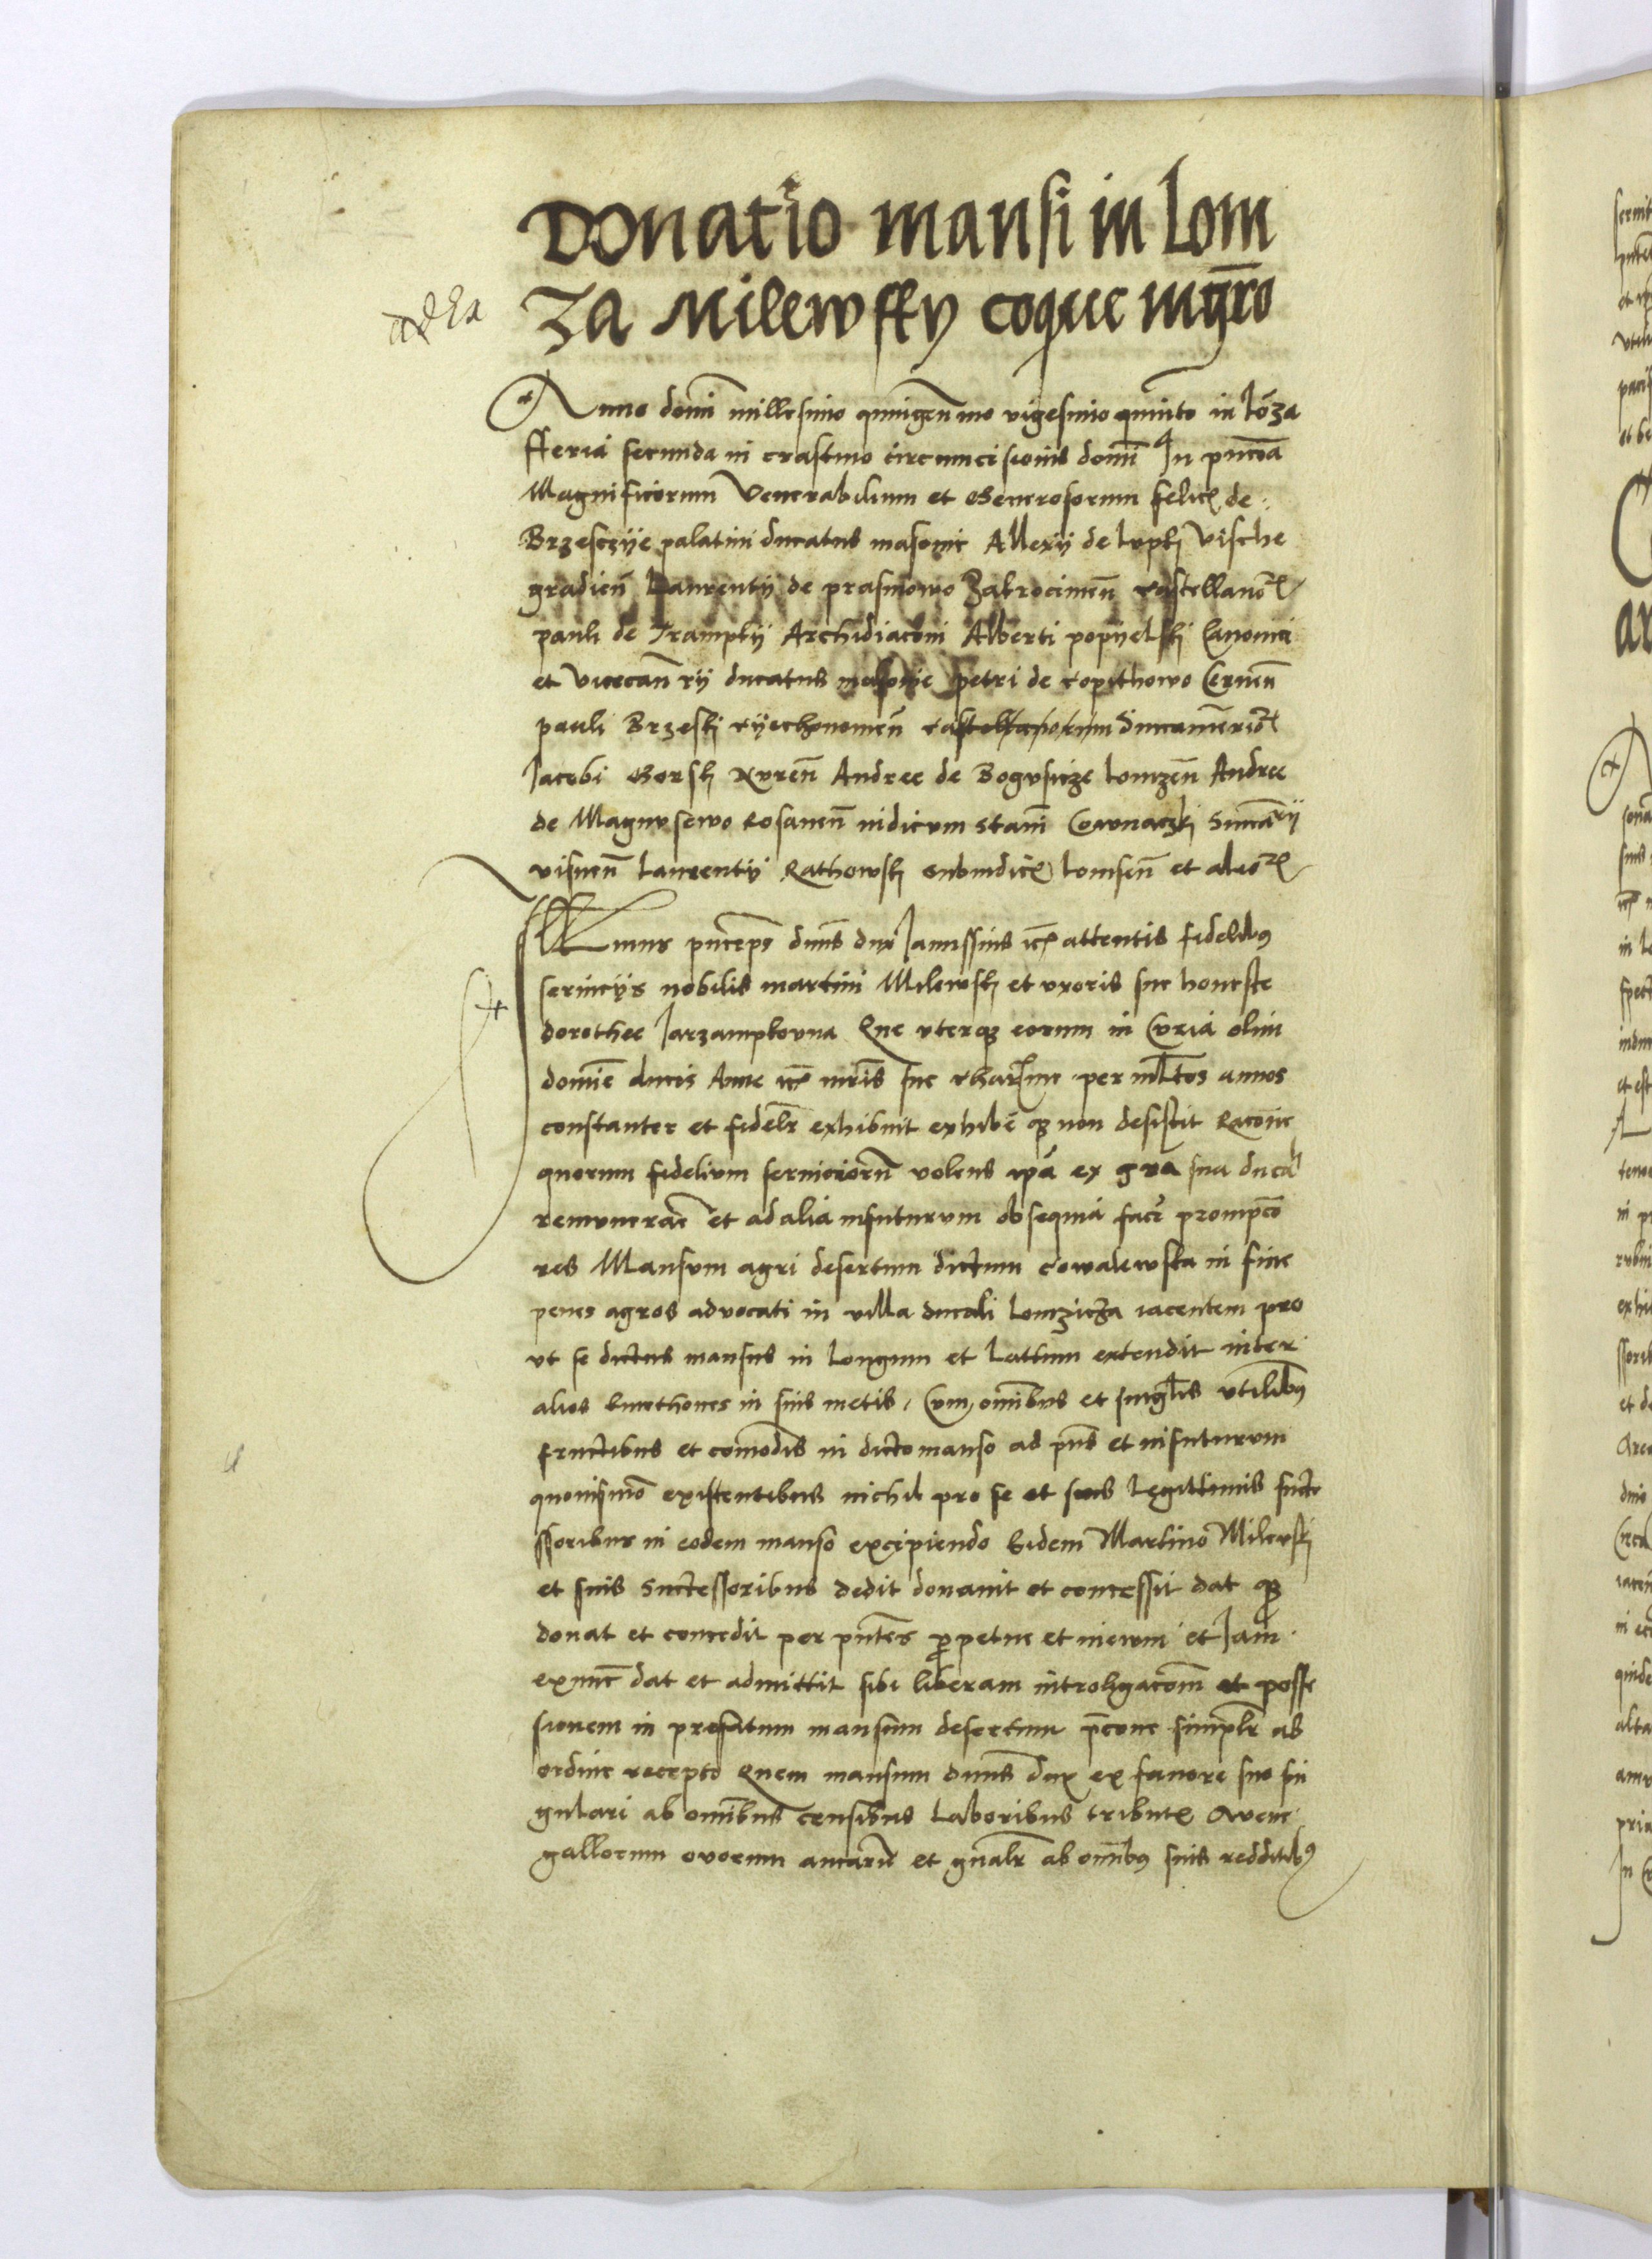 Donatio mansi in Lom
za Milewsky coque mgro
Anno domi millesimo quingenmo vigesimo quinto in Lomza
fferia secunda in crastino circumcisionis domi In pncia
Magnificorum Venerabilium et Generosorum felic de
Brzesczije palatini ducatus masovie Allexij de lupki Vische
gradien Laurentij de prasmowo Zakrocimen castellanor
pauli de Trampkij Archidiaconi Alberti popijelski Canonici
et Vicecanrij ducatus masovie petri de copithowo Cernen
pauli Brzeski cijechonomen castellanorum Succamerior
Jacobi Gorski Nvren Andree de Bogusicze lomzen Andree
de Magnusewo Rosanen iudicum Stani Cownaczki Succarij
visnen laurentij Rathowski subiudic lomsen et alior
Illmus princeps dnus dux Janussius etc attentis fidelibus
servicijs nobilis martini Milewski et vxoris sue honeste
dorothee Jarzampkovna Que vterque eorum in Curia olim
domie ducis Anne etc mris sue charime per mltos annos
constanter et fidelr exhibuit exhibe que non desistit Racione
quorum fidelium serviciorum volens ipa ex gra sua ducal
remunerare et ad alia infuturum obsequia facr prompcio
res Mansum agri desertum dictum cowalewska in fine
penes agros advocati in villa ducali lomzicza iacentem pro
vt se dictus mansus in longum et lattum extendit inter
alios kmethones in suis metis, Cum omibus et singlis vtilibus
fructibus et comodis in dicto manso ad pns et infuturum
quouismo existentibus nichil pro se et suis legittimis succe
ssoribus in eodem manso excipiendo Eidem Martino Milewski
et suis Successoribus dedit donavit et concessit dat que
donat et concedit per pntes perpetue et inewm et Jam
exnunc dat et admittit sibi liberam introligacom et posse
sionem in prefatum mansum desertum precone simplr ab
ordine recepto Quem mansum dnus dux ex favore suo sin
gulari ab omibus censibus laboribus tributis Avene
gallorum ovorum aucarum et gnalr ab omibus suis redditibus